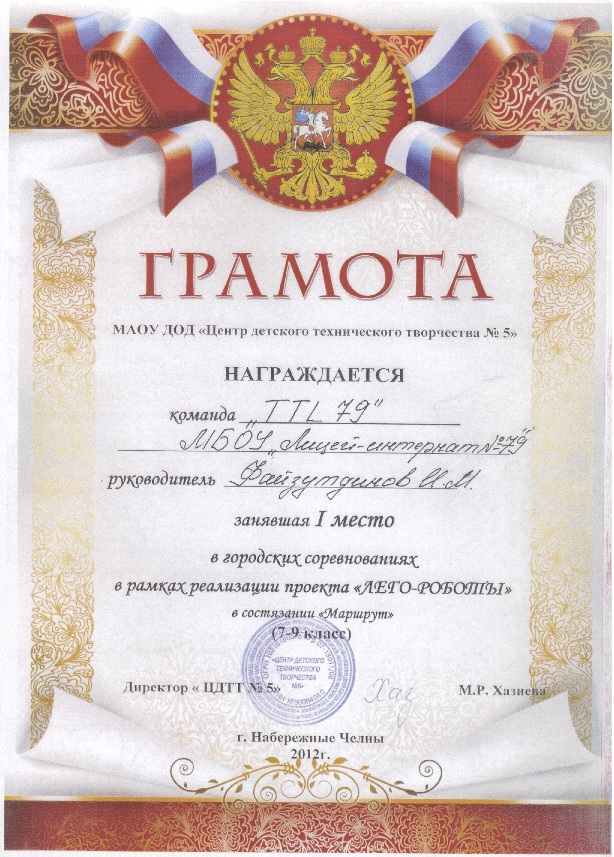 ГРАМОТА
МАОУ ДОД «Центр детского технического творчества № 5»
НАГРАЖДАЕТСЯ
команда „TTL 79"
МБОУ „Лицей-интернат №79"
руководитель Файзутдинов И.М.
занявшая I место
в городских соревнованиях
в рамках реализации проекта «ЛЕГО-РОБОТЫ»
в состязании «Маршрут»
(7-9 класс)
«ЦЕНТР ДЕТСКОГО
ТЕХНИЧЕСКОГО
ТВОРЧЕСТВА
№5»
Директор « ЦДТТ № 5» М.Р. Хазиева
г. Набережные Челны
2012г.